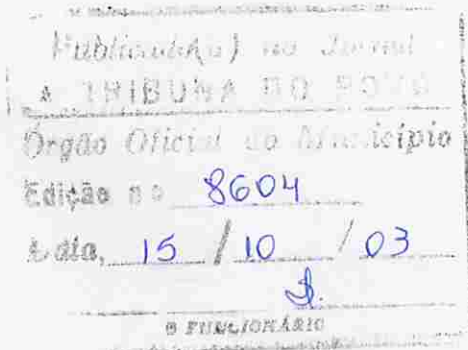 Publicado(a) no Jornal
A TRIBUNA DO POVO
Órgão Oficial do Município
Edição nº 8604
data, 15 / 10 / 03
O FUNCIONÁRIO